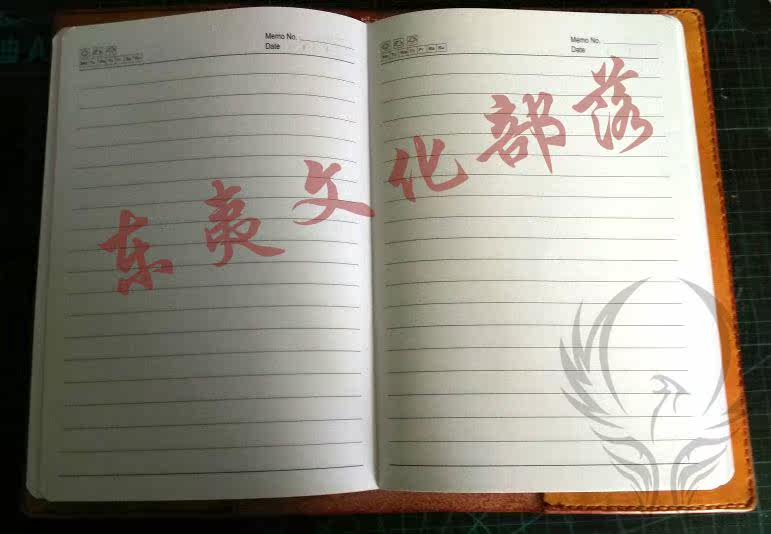 Memo No.
Date
Mo Tu We Th Fr Sa Su
Memo No.
Date
Mo Tu We Th Fr Sa Su
东夷文化部落